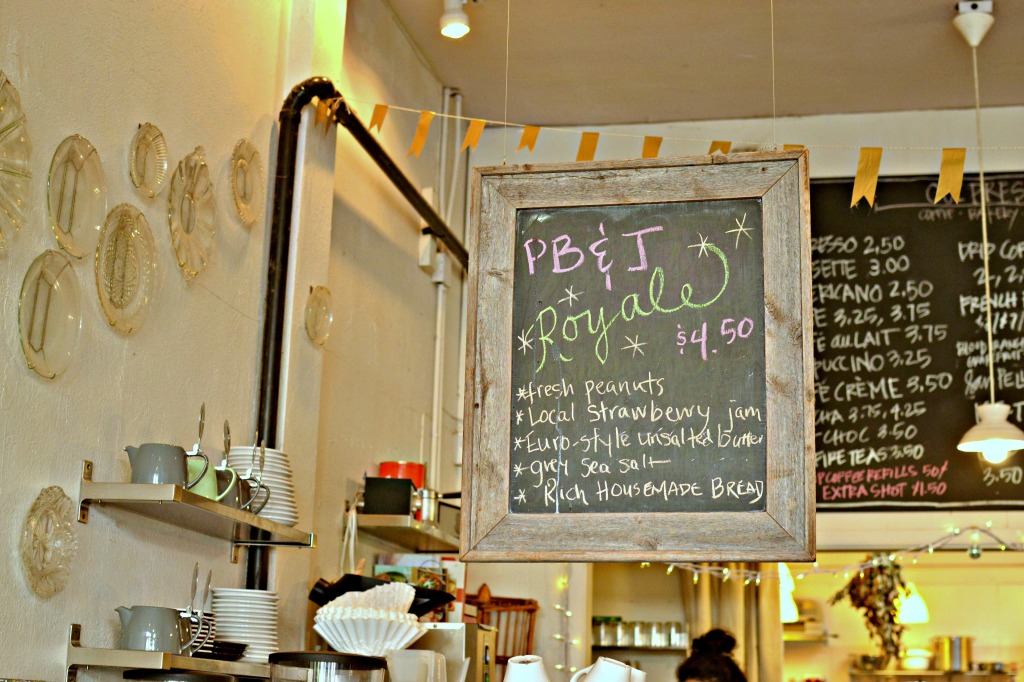 PB & J
Royale
$4.50
*fresh peanuts
*Local strawberry jam
*Euro-style unsalted butter
*grey sea salt
* Rich HOUSEMADE BREAD
PRES
COFFEE · BAKERY
ESSO 2.50
3.00
ERICANO 2.50
E 3.25, 3.75
AU LAIT 3.75
PUCCINO 3.25
CRÈME 3.50
3.75, 4.25
CHOC 3.50
TEAS 3.50
COFFEE REFILLS 50¢
EXTRA SHOT $1.50
DRIP COF
FRENCH
SAN PELL
3.50